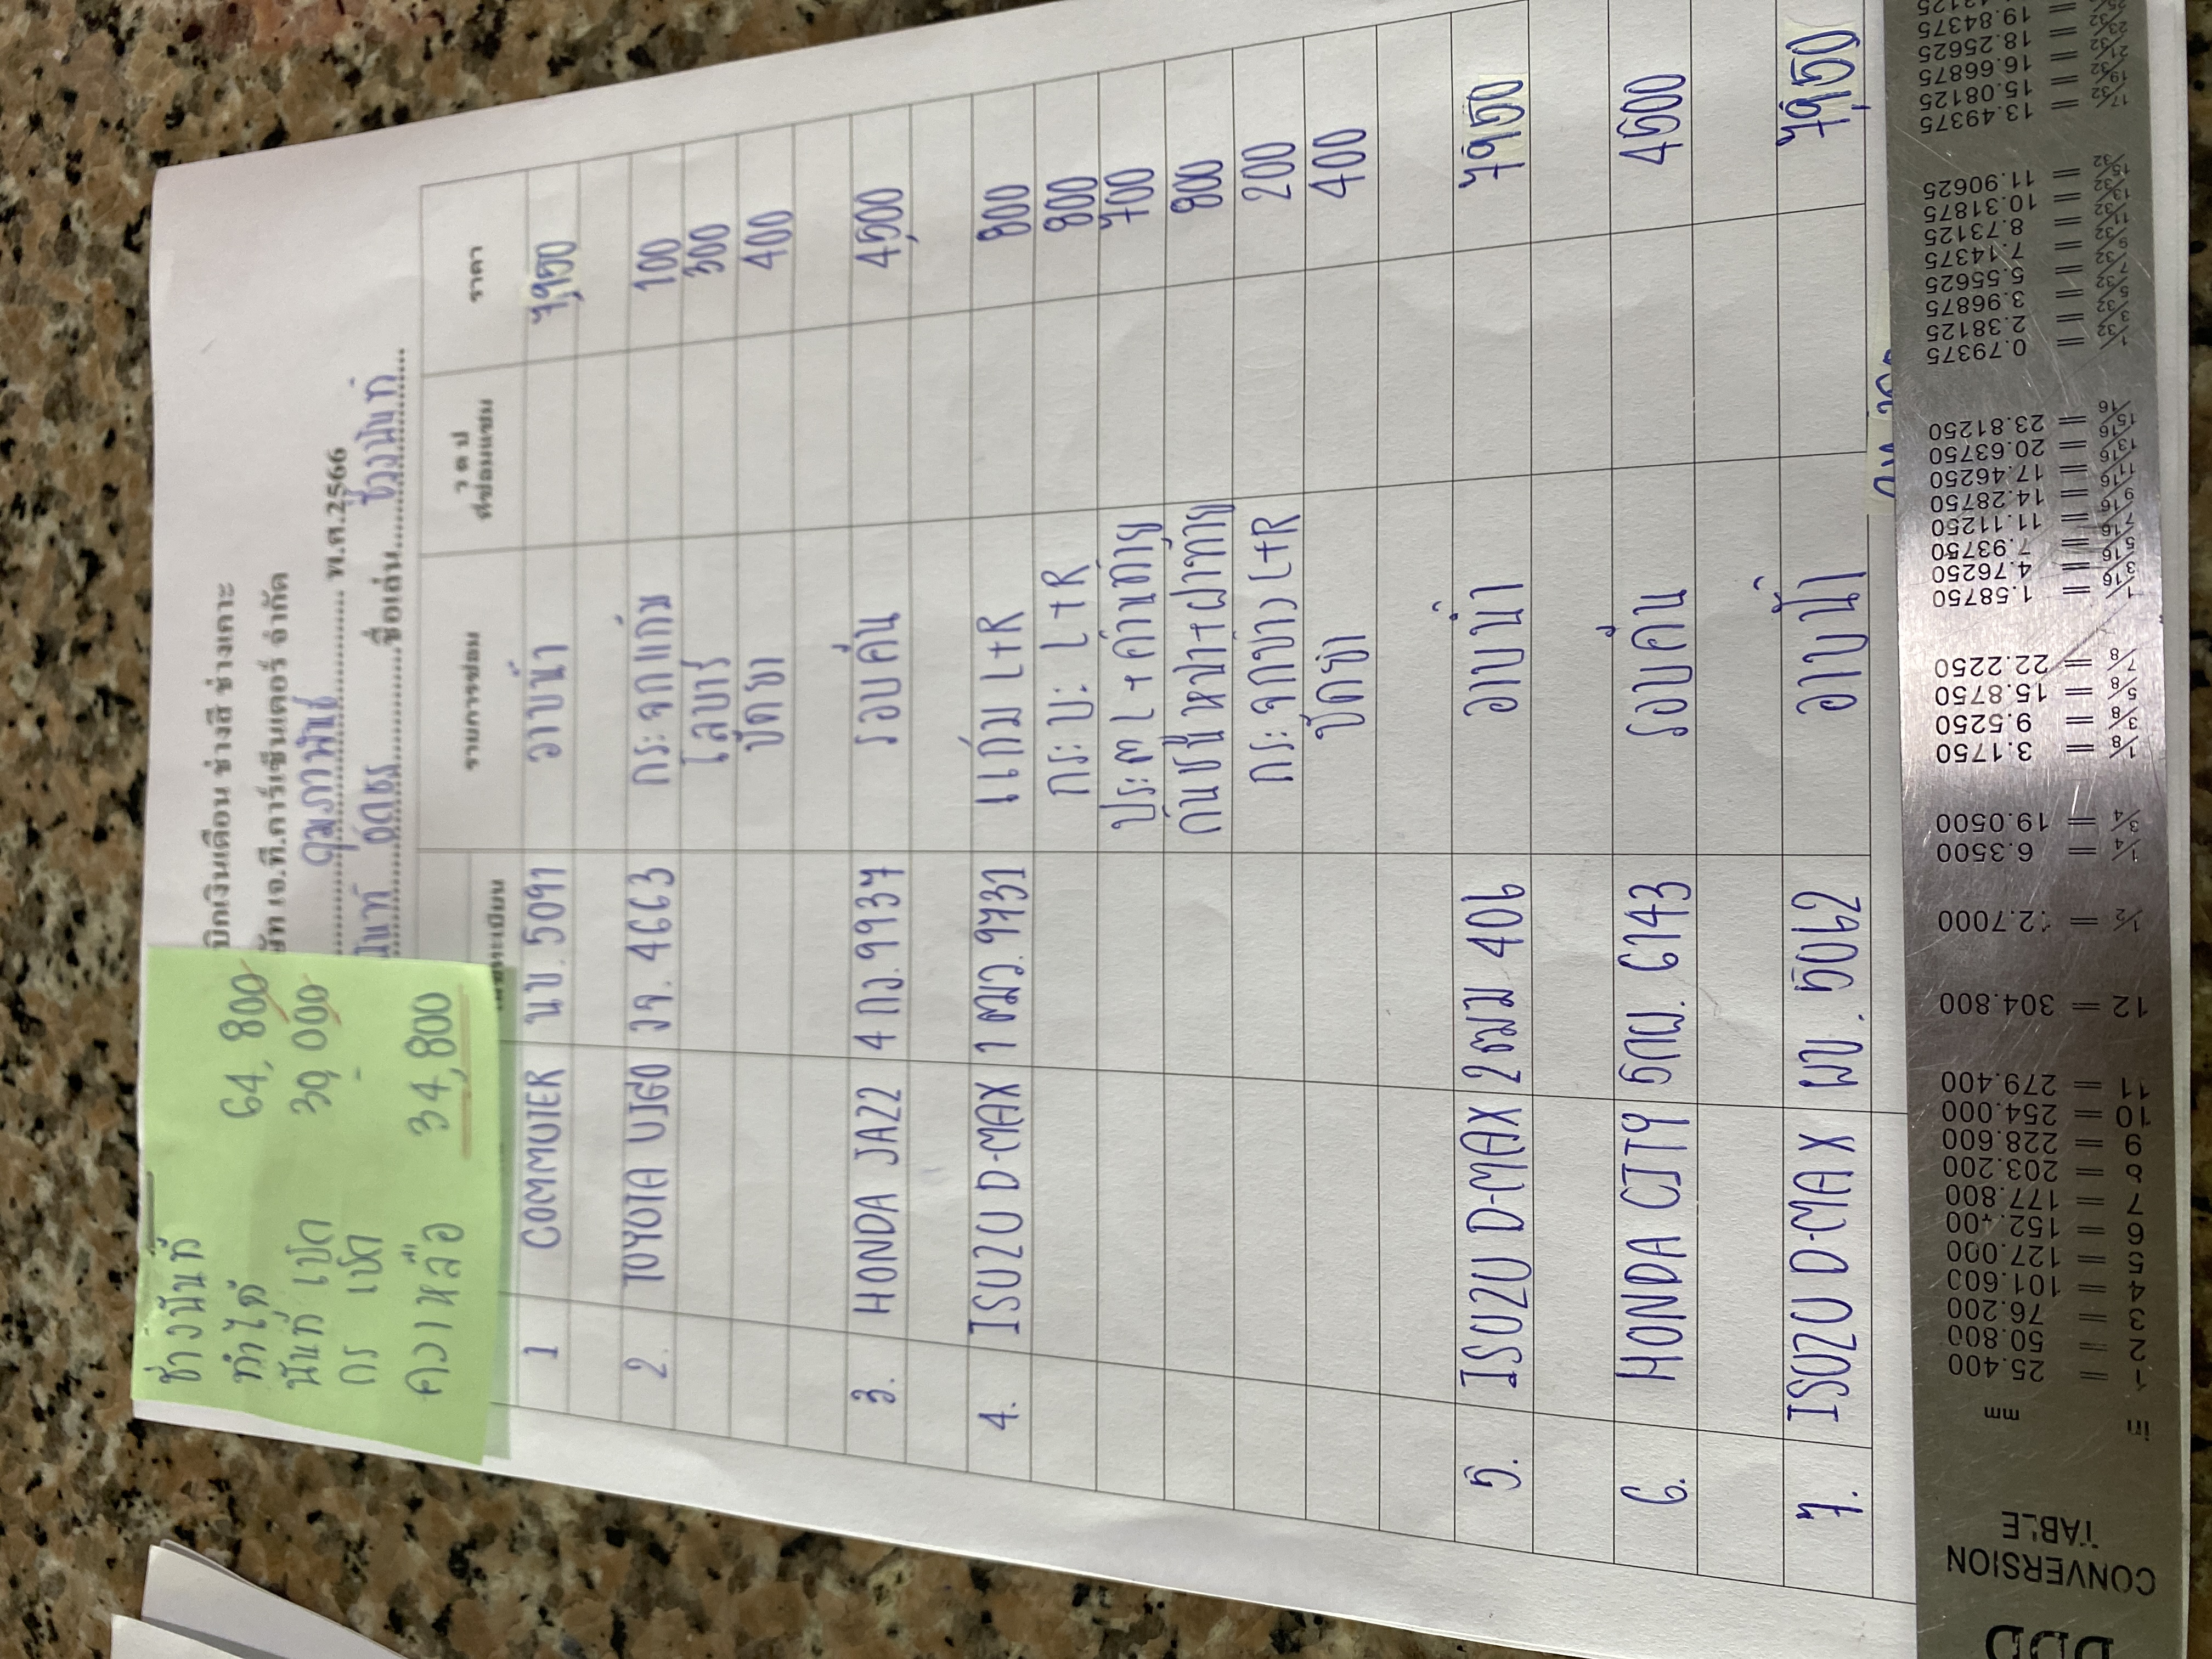 ช่างนันท์
ทำได้ 64,800
นันท์ เบิก 30,000
กร เบิก -
คงเหลือ 34,800
บิกเงินเดือน ช่างสี ช่างเคาะ
ษัท เจ.ที.คาร์เซ็นเตอร์ จำกัด
กุมภาพันธ์ พ.ศ.2566
ชื่อเล่น ช่างนันท์
รายการซ่อม ว ด ป ราคา
ที่ซ่อมแซม
1 COMMUTER นข. 5091 อาบน้ำ 7,950
2. TOYOTA VIGO วจ. 4663 กระจกแก้ม 100
โลบาร์ 300
ขัดยา 400
3. HONDA JAZZ 4 กว. 9937 รอบคัน 4,500
4. ISUZU D-MAX 1 ฒว. 9731 แก้ม L+R 800
กระบะ L+R 800
ประตู L + ด้านท้าย 700
กันชนหน้า+ฝาท้าย 800
กระจกข้าง L+R 200
ขัดยา 400
5. ISUZU D-MAX 2 ฒม 406 อาบน้ำ 7,950
6. HONDA CITY 5กผ. 6143 รอบคัน 4500
7. ISUZU D-MAX ผบ. 5062 อาบน้ำ 7,950
DDD
CONVERSION
TABLE
in mm
1 = 25.400
2 = 50.800
3 = 76.200
4 = 101.600
5 = 127.000
6 = 152.400
7 = 177.800
8 = 203.200
9 = 228.600
10 = 254.000
11 = 279.400
12 = 304.800
1/2 = 12.7000
1/4 = 6.3500
3/4 = 19.0500
1/8 = 3.1750
3/8 = 9.5250
5/8 = 15.8750
7/8 = 22.2250
1/16 = 1.58750
3/16 = 4.76250
5/16 = 7.93750
7/16 = 11.11250
9/16 = 14.28750
11/16 = 17.46250
13/16 = 20.63750
15/16 = 23.81250
1/32 = 0.79375
3/32 = 2.38125
5/32 = 3.96875
7/32 = 5.55625
9/32 = 7.14375
11/32 = 8.73125
13/32 = 10.31875
15/32 = 11.90625
17/32 = 13.49375
19/32 = 15.08125
21/32 = 16.66875
23/32 = 18.25625
19.84375